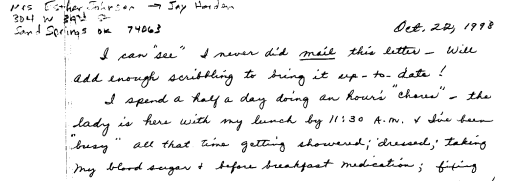 Mrs Esther Johnson → Jay Horden
304 W 39th St
Sand Springs OK 74063
Oct. 22, 1998
I can "see" I never did mail this letter – Will
add enough scribbling to bring it up-to-date!
I spend a half a day doing an hour's "chores" – the
lady is here with my lunch by 11:30 A.M. & I've been
"busy" all that time getting showered; dressed; taking
my blood sugar & before breakfast medication; fixing